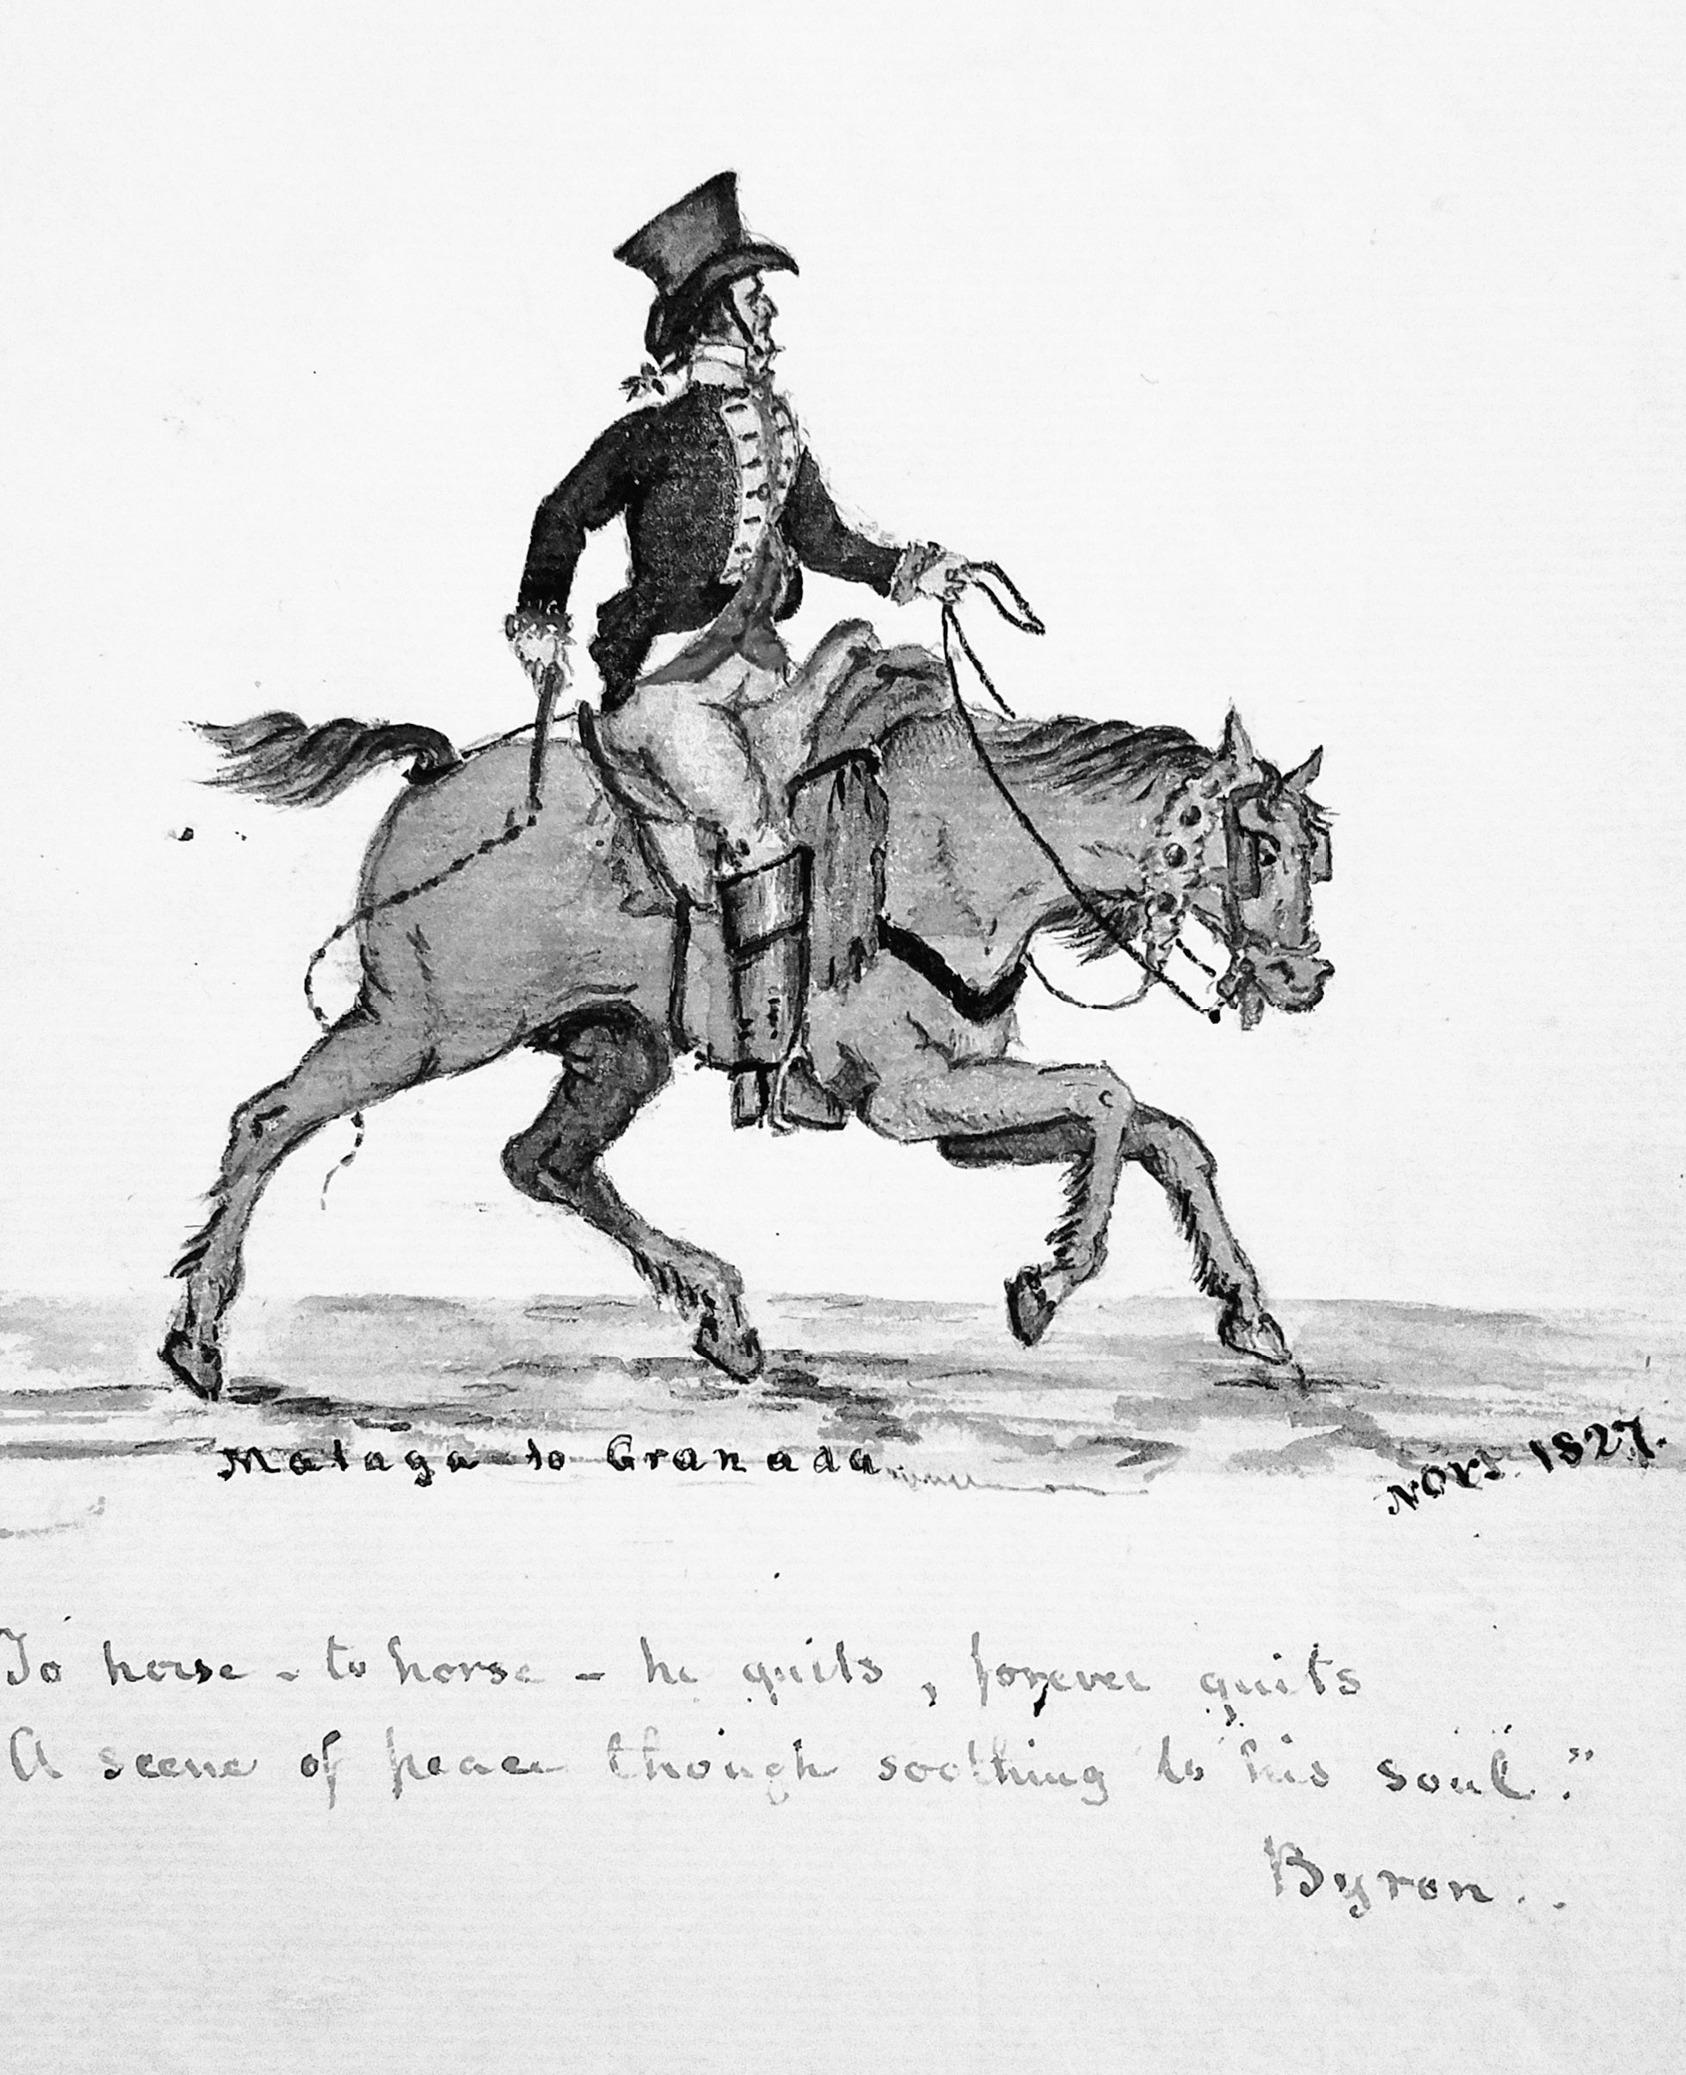 Malaga to Granada
Novr. 1827.
To horse - to horse - he quits, forever quits
A scene of peace though soothing to his soul."
Byron..